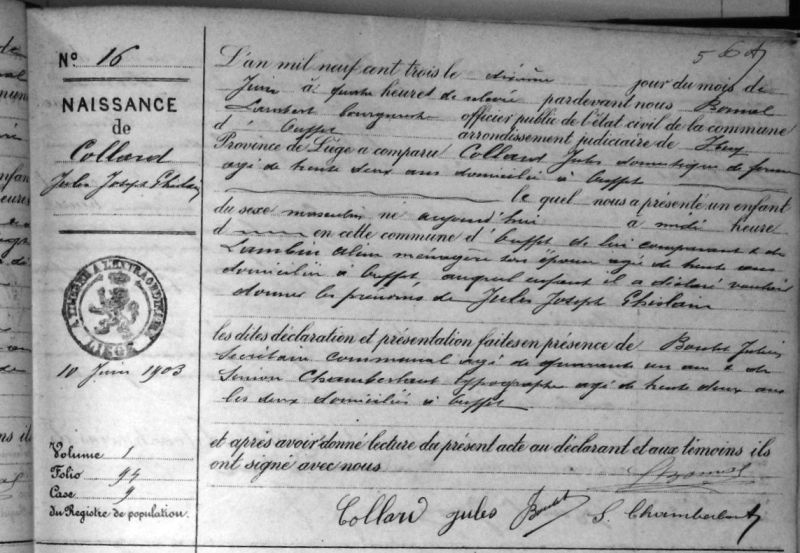 Nº 16
NAISSANCE
de
Collard
Jules Joseph Ghislain
LIÈGE
10 Juin 1903
Volume 1
Folio 94
Case 9
du Registre de population.
L'an mil neuf cent trois le dixième jour du mois de
Juin à quatre heures de relevée pardevant nous Bonmal
Lambert bourgmestre officier public de l'état civil de la commune
d' Ouffet arrondissement judiciaire de Huy
Province de Liége a comparu Collard Jules domestique de ferme
agé de trente deux ans domicilié à Ouffet
le quel nous a présenté un enfant
du sexe masculin né aujourd'hui à midi heure
d en cette commune d' Ouffet de lui comparant & de
Lambin ménagère son épouse agée de trente ans
domiciliée à Ouffet auquel enfant il a déclaré vouloir
donner les prénoms de Jules Joseph Ghislain
les dites déclaration et présentation faites en présence de Boulet Julien
Secrétaire communal agé de quarante un ans & de
Simon Chamberlant typographe agé de trente deux ans
les deux domiciliés à Ouffet
et après avoir donné lecture du présent acte au déclarant et aux témoins ils
ont signé avec nous
Collard Jules Boulet S. Chamberlant